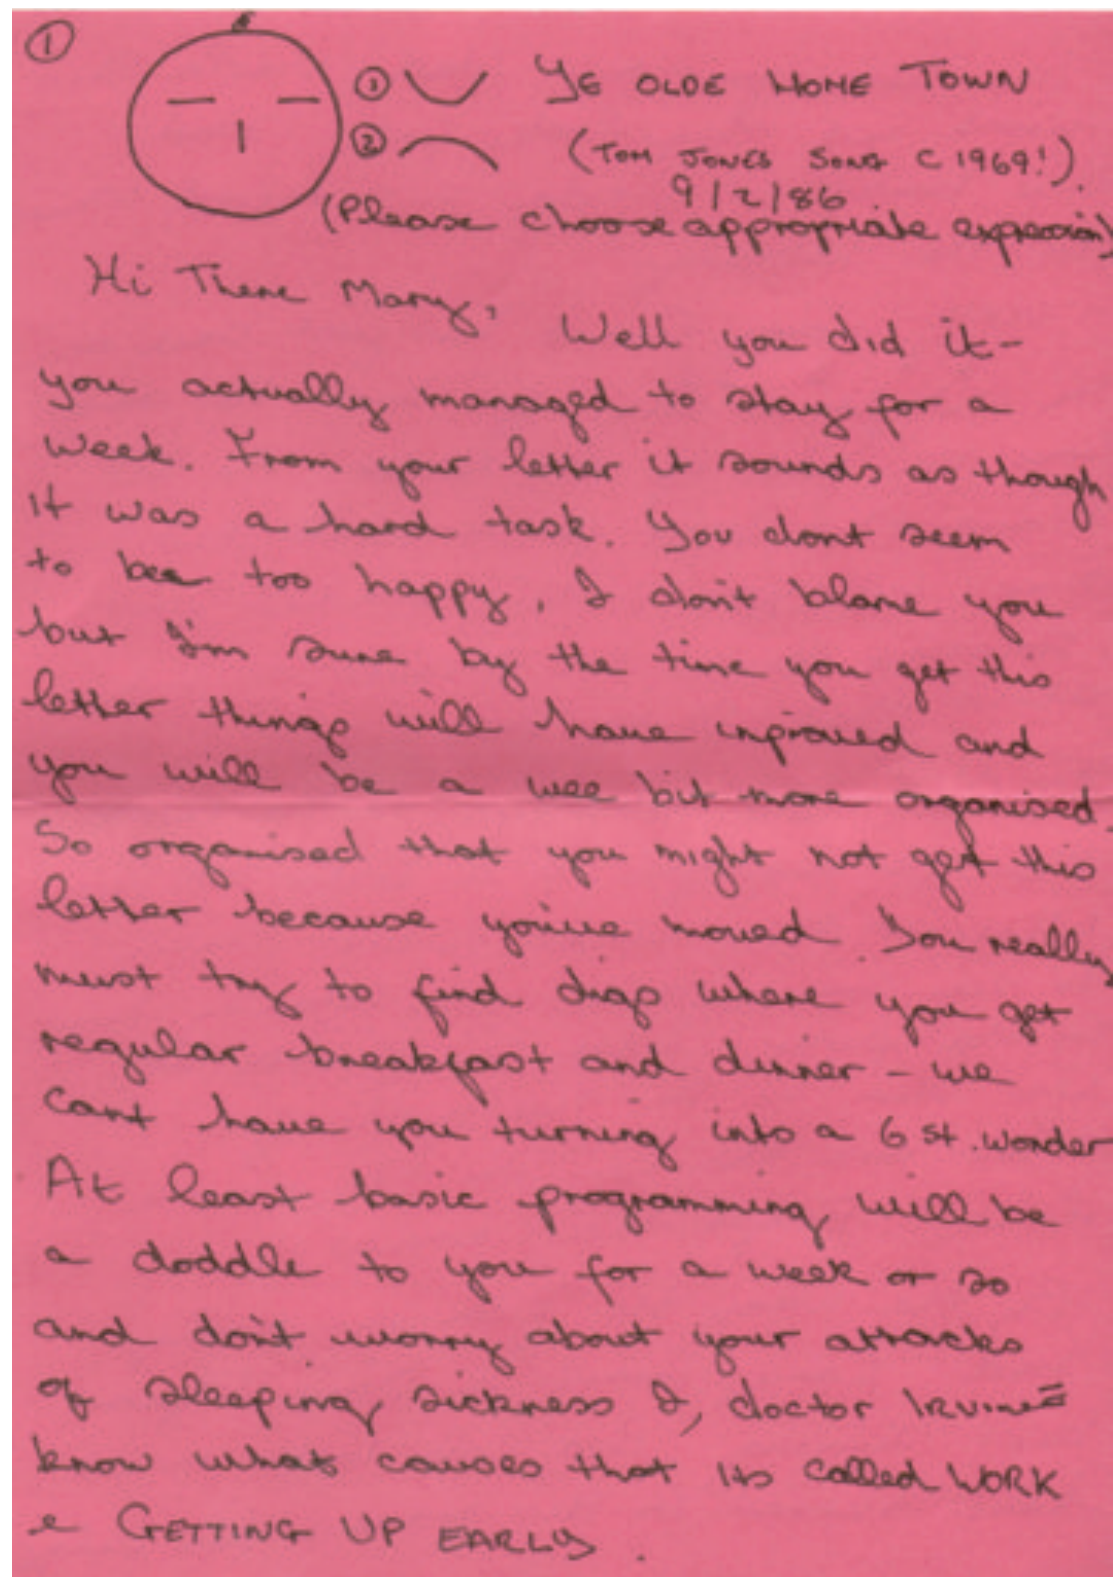 ①
① YE OLDE HOME TOWN
② (TOM JONES SONG C 1969!).
9/2/86
(Please choose appropriate expression)
Hi There Mary, Well you did it-
you actually managed to stay for a
week. From your letter it sounds as though
it was a hard task. You dont seem
to be too happy, I don't blame you
but I'm sure by the time you get this
letter things will have improved and
you will be a wee bit more organised.
So organised that you might not get this
letter because you've moved. You really
must try to find digs where you get
regular breakfast and dinner - we
cant have you turning into a 6 st. wonder
At least basic programming will be
a doddle to you for a week or so
and don't worry about your attacks
of sleeping sickness I, doctor Irvine
know what causes that its called WORK
& GETTING UP EARLY.